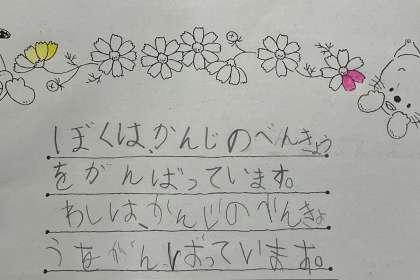 ぼくは、かんじのべんきょう
をがんばっています。
わしは、かんじのべんきょ
うをがんばっています。